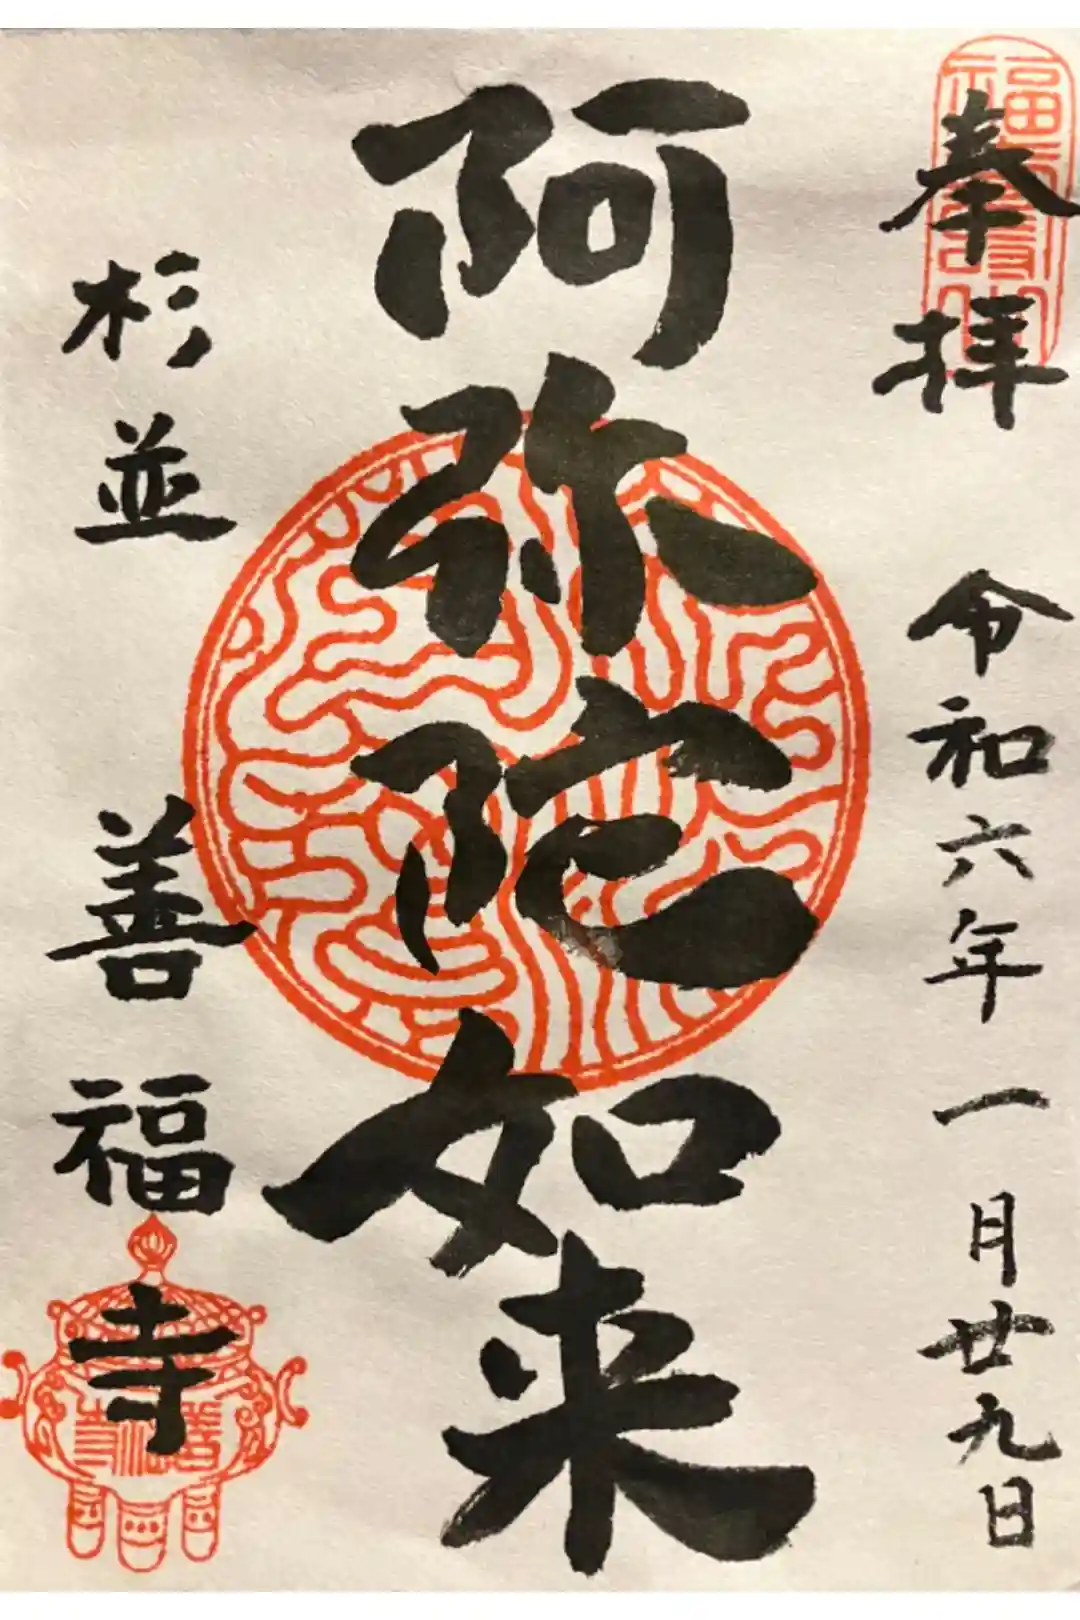 奉拝
令和六年一月廿九日
阿弥陀如来
杉並
善福寺
善福寺